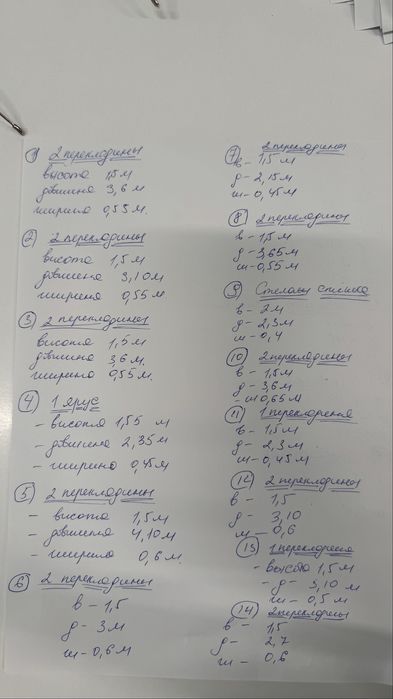 1) 2 перекладины
высота 1,5 м
длинна 3,6 м
ширина 0,55 м.
2) 2 перекладины
высота 1,5 м
длинна 3,10 м
ширина 0,55 м
3) 2 перекладины
высота 1,5 м
длинна 3,6 м.
ширина 0,55 м.
4) 1 ярус
- высота 1,55 м
- длинна 2,35 м
- ширина 0,45 м
5) 2 перекладины
- высота 1,5 м
- длинна 4,10 м
- ширина 0,6 м.
6) 2 перекладины
в - 1,5
д - 3 м
ш - 0,6 м
7) 2 перекладины
в - 1,5 м
д - 2,15 м
ш - 0,45 м
8) 2 перекладины
в - 1,5 м
д - 3,65 м
ш - 0,55 м
9) 
в - 2 м
д - 2,3 м
ш - 0,4
10) 2 перекладины
в - 1,5 м
д - 3,6 м
ш 0,65 м
11) 1 перекладина
в - 1,5 м
д - 2,3 м
ш - 0,45 м
12) 2 перекладины
в - 1,5
д - 3,10
ш - 0,6
13) 1 перекладина
- высота 1,5 м
- д - 3,10 м
ш - 0,5 м
14) 2 перекладины
в - 1,5
д - 2,7
ш - 0,6